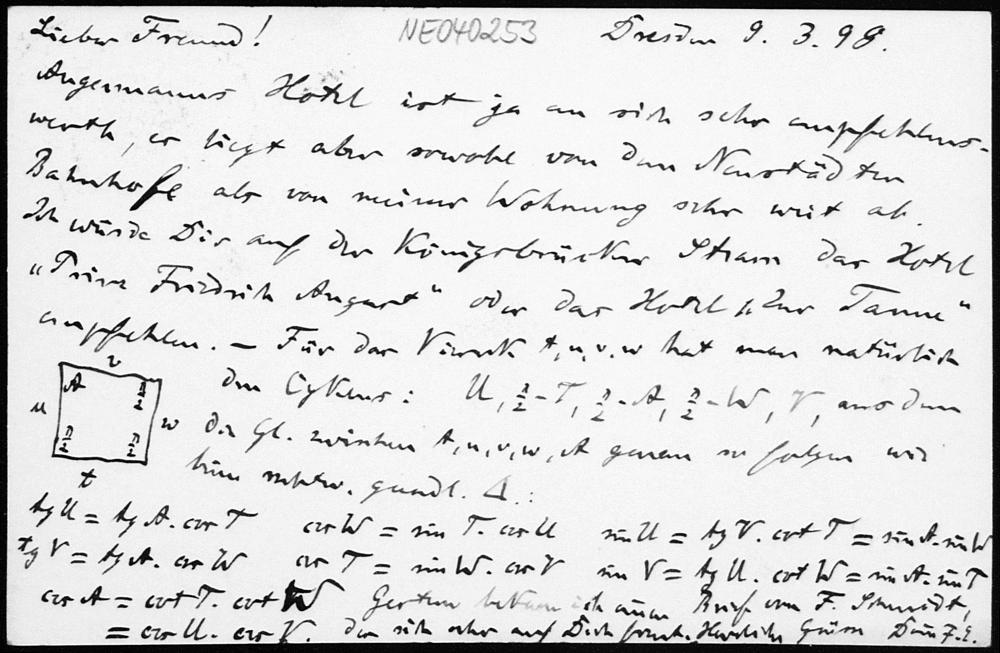 Lieber Freund! NE040253 Dresden 9. 3. 98.
Angermanns Hotel ist ja an sich sehr empfehlens-
werth, es liegt aber sowohl von dem Neustädter
Bahnhofe als von meiner Wohnung sehr weit ab.
Ich würde Dir auf der Königsbrücker Strasse das Hotel
„Prinz Friedrich August“ oder das Hotel „Zur Tanne“
empfehlen. – Für das Viereck t, u, v, w hat man natürlich
den Cyklus: U, π/2 - T, π/2 - A, π/2 - W, V, aus dem
die Gl. zwischen t, u, v, w, A genau so folgen wie
beim rechtw. Δ.:
v
A π/2
u w
π/2 π/2
t
tg U = tg A. cos T cos W = sin T. cos U sin U = tg V. cot T = sin A. sin W
tg V = tg A. cos W cos T = sin W. cos V sin V = tg U. cot W = sin A. sin T
cos A = cot T. cot W Gestern bekam ich einen Brief von F. Schmidt,
= cos U. cos V. der sich sehr auf Dich freut. Herzliche Grüsse Dein F. E.